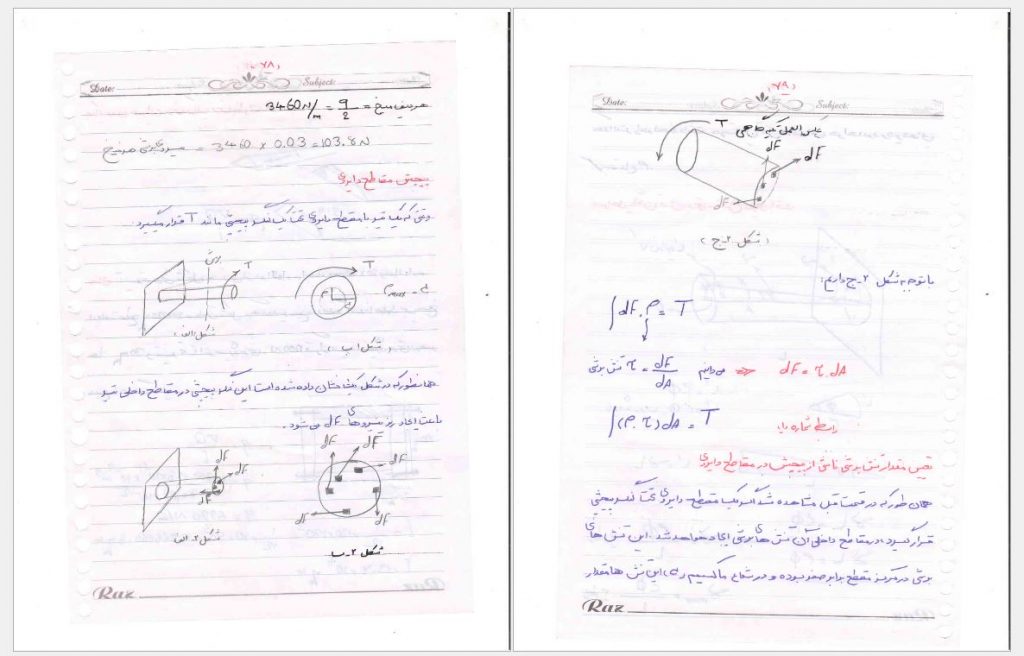 «۷۸»
Date: Subject:
هر میخ = q/2 = 3460 N/m
نیروی برشی هر میخ = 3460 x 0.03 = 103.8 N
پیچش مقاطع دایروی
وقتی که یک تیر با مقطع دایروی تحت یک لنگر پیچشی مانند T قرار میگیرد.
برش
T
T
r
شکل ۱ الف
شکل ۱ ب
همانطور که در شکل نشان داده شده است این لنگر پیچشی در مقاطع داخلی تیر
باعث ایجاد ریز نیروهای dF می شود.
dF
dF
dF
dF
dF
dF
dF
dF
شکل ۲ـ الف
شکل ۲ـ ب
Raz
«۷۹»
Date: Subject:
عکس العمل تکیه گاهی
T
dF
dF
dF
(شکل ۲ـ ج)
با توجه به شکل ۲ـ ج داریم:
∫dF.ρ = T
می دانیم τ = dF/dA تنش برشی ⇒ dF = τ.dA
∫(ρ.τ)dA = T رابطه شماره یک
تعیین مقدار تنش برشی ناشی از پیچش در مقاطع دایروی
همان طور که در قسمت قبل مشاهده شد اگر یک مقطع دایروی تحت لنگر پیچشی
قرار گیرد، در مقاطع داخلی آن تنش های برشی ایجاد خواهد شد. این تنش های
برشی در مرکز مقطع برابر صفر بوده و در شعاع ماکسیمم (c) این تنش ها مقدار
Raz